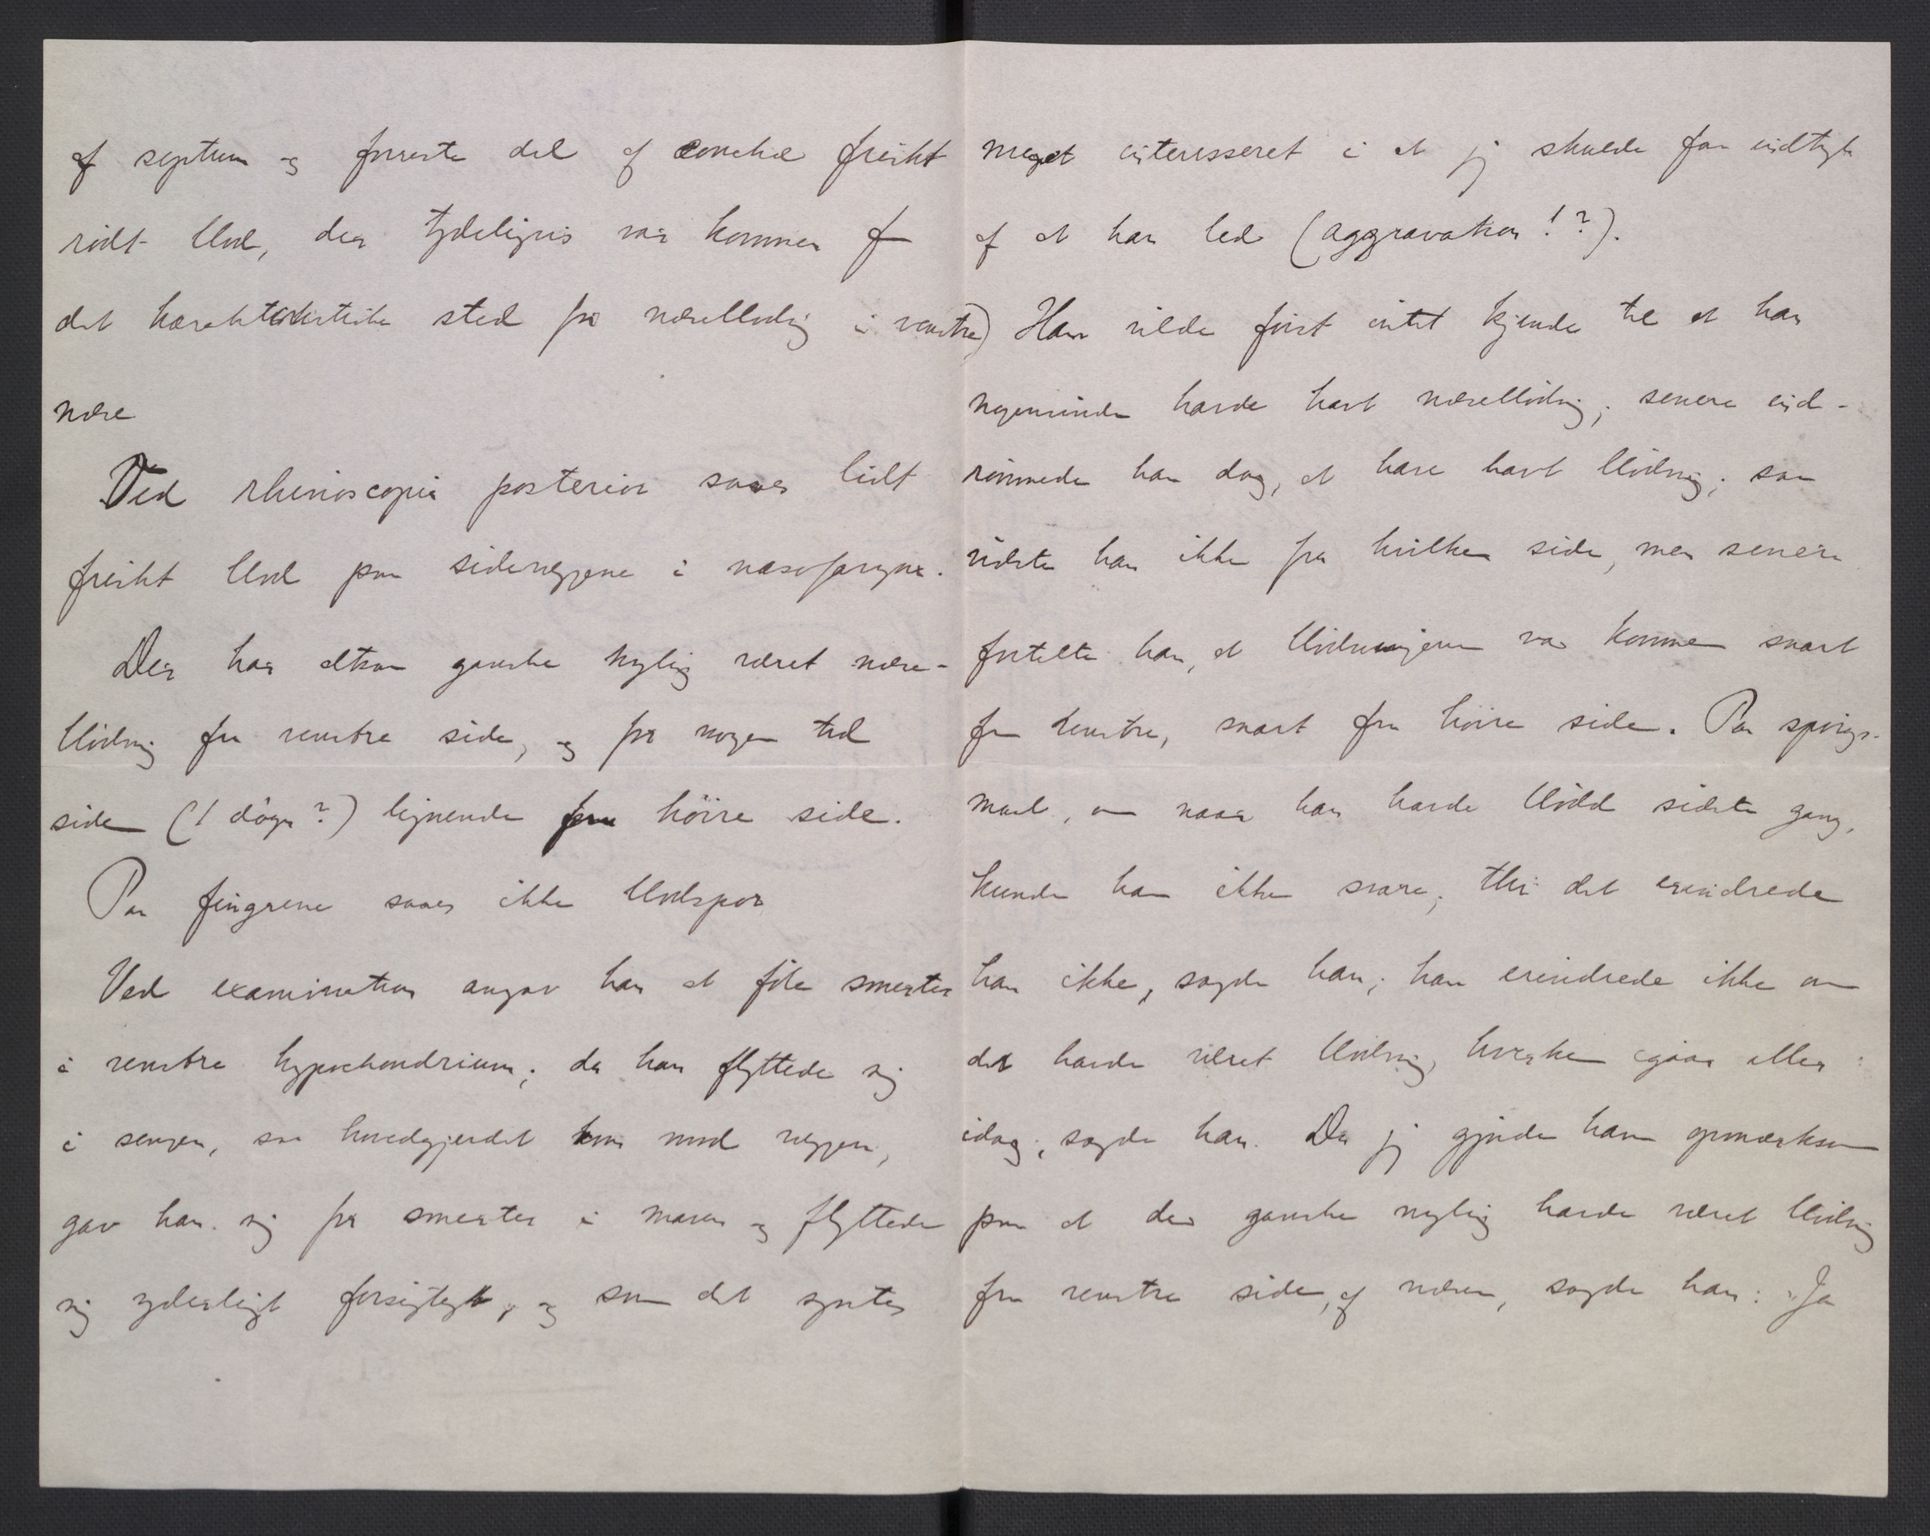 af septum og forreste del af conchæ friskt
rödt blod, der tydeligvis var kommen fra
det karakteristiske sted for næseblödning i venstre
næse
Ved rhinoscopia posterior saaes lidt
friskt blod paa sidevæggene i nasofarynx.
Der har altsaa ganske nylig været næse-
blödning fra venstre side, og for nogen tid
siden (1 døgn?) lignende fra höire side.
Paa fingrene saaes ikke blodspor
Ved examination angav han at föle smerter
i venstre hypochondrium; da han flyttede sig
i sengen, saa hovedgjerdet kom mod væggen,
gav han sig for smerter i maven og flyttede
sig yderligt forsigtigt, og som det syntes
meget interesseret i at jeg skulde faa indtryk
af at han led (aggravation!?).
Han vilde först intet kjende til at han
nogensinde havde havt næseblödning; senere ind-
römmede han dog, at have havt blödning; saa
vidste han ikke fra hvilken side, men senere
fortalte han, at blödningerne var kommen snart
fra venstre, snart fra höire side. Paa spörgs-
maal, om naar han havde blödd sidste gang,
kunde han ikke svare; thi det erindrede
han ikke, sagde han; han erindrede ikke om
det havde været blödning, hverken igaar eller
idag, sagde han. Da jeg gjorde ham opmærksom
paa at der ganske nylig havde været blödning
fra venstre side af næsen, sagde han: "Ja